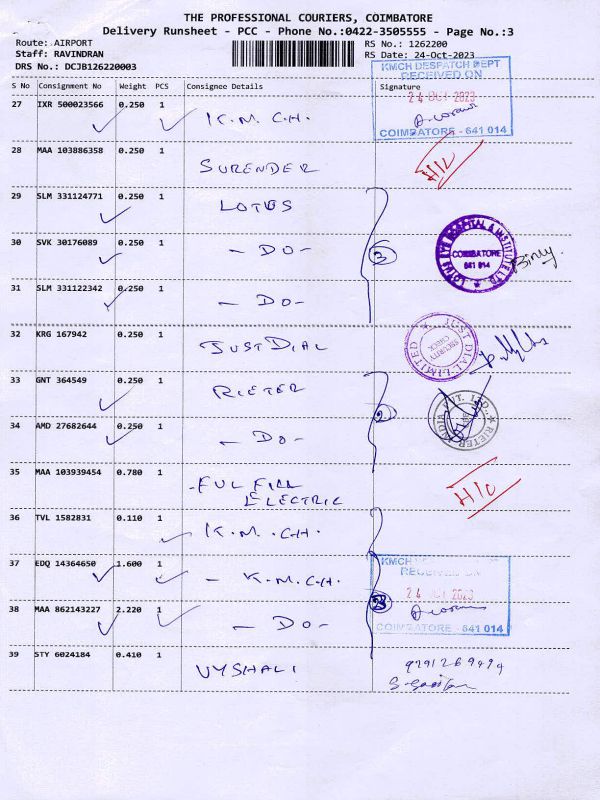 THE PROFESSIONAL COURIERS, COIMBATORE
Delivery Runsheet - PCC - Phone No.:0422-3505555 - Page No.:3
Route: AIRPORT
RS No.: 1262200
Staff: RAVINDRAN
RS Date: 24-Oct-2023
DRS No.: DCJB126220003
KMCH DESPATCH DEPT
RECEIVED ON
24 OCT 2023
COIMBATORE - 641 014
S No Consignment No Weight PCS Consignee Details Signature
27 IXR 500023566 0.250 1 K.M.C.H.
28 MAA 103886358 0.250 1 SURENDER H/C
29 SLM 331124771 0.250 1 LOTUS
30 SVK 30176089 0.250 1 - DO - 3
LOTUS EYE HOSPITAL & INSTITUTE LTD
COIMBATORE
641 014
31 SLM 331122342 0.250 1 - DO -
32 KRG 167942 0.250 1 JUSTDIAL
JUST DIAL LIMITED
SECURITY
CHECK
33 GNT 364549 0.250 1 RIETER 2
RIETER INDIA PVT. LTD.
34 AMD 27682644 0.250 1 - DO -
35 MAA 103939454 0.780 1 FULFILL
ELECTRIC H/C
36 TVL 1582831 0.110 1 K.M.C.H.
37 EDQ 14364650 1.600 1 - K.M.C.H.
KMCH DESPATCH DEPT
RECEIVED ON
24 OCT 2023
COIMBATORE - 641 014
38 MAA 862143227 2.220 1 - DO - 3
39 STY 6024184 0.410 1 VYSHALI